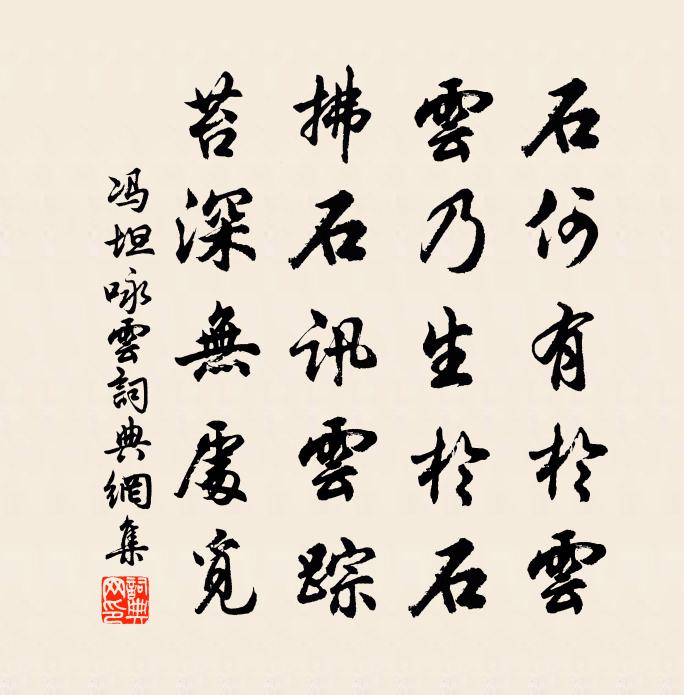 石何有於雲
雲乃生於石
拂石訊雲踪
苔深無處覓
冯坦咏雲詞典網集
詞典網印